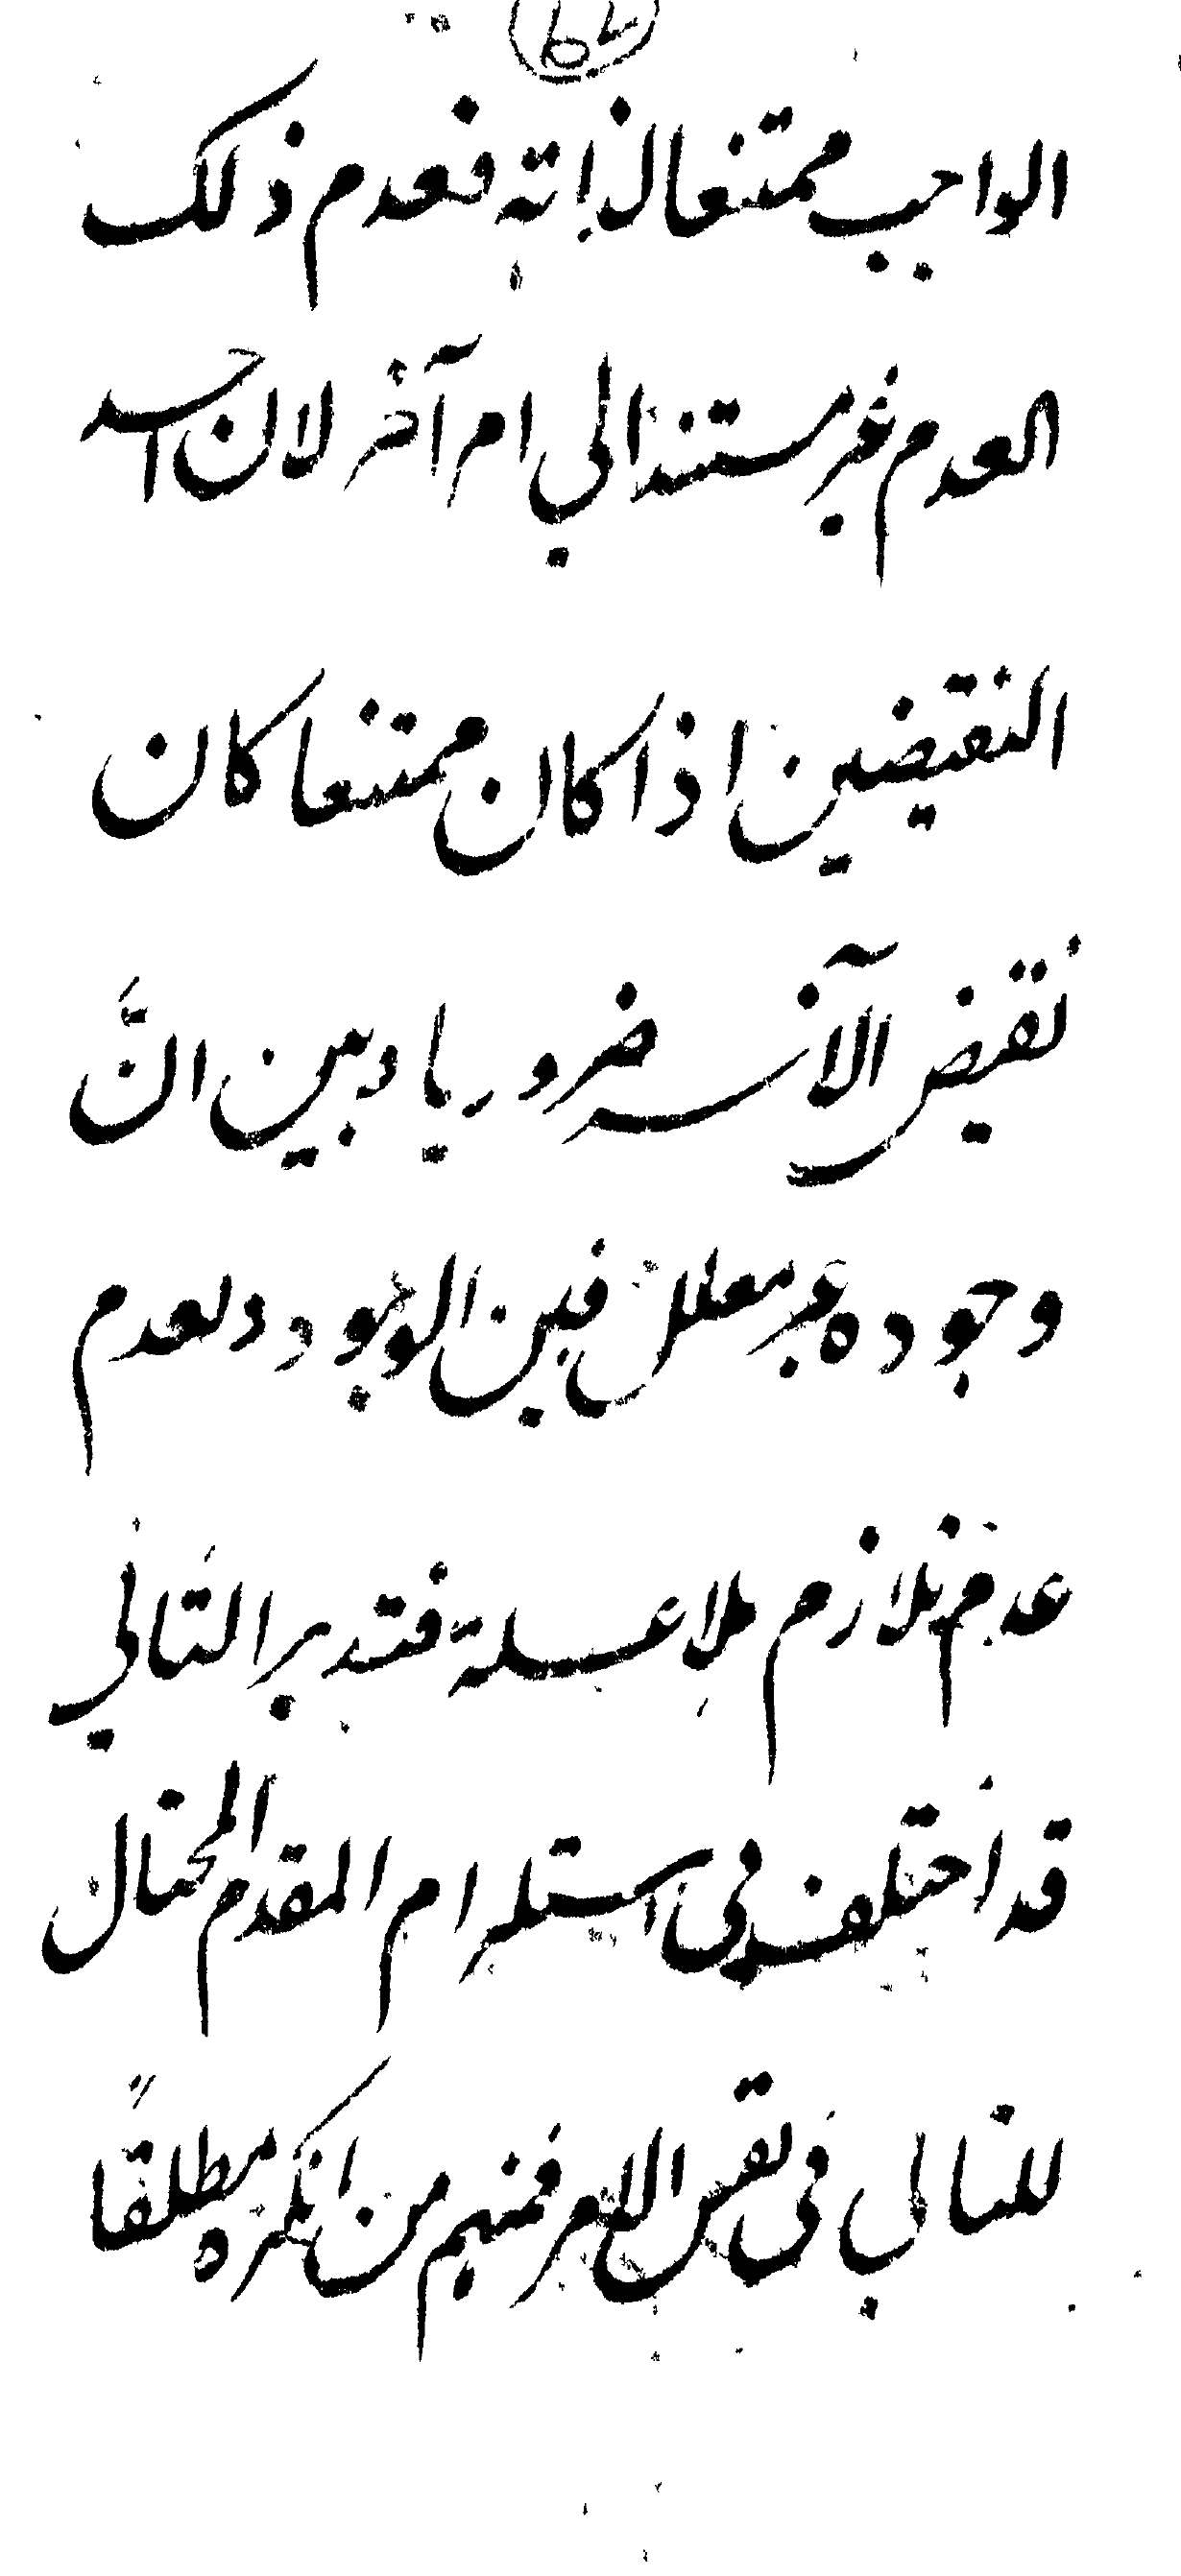 الواجب ممتنعا لذاته فعدم ذلك
العدم غير مستند الى امر آخر لان احد
النقيضين اذا كان ممتنعا كان
نقيض الآخر ضروريا وبين انّ
وجوده غير معلل فبين الوجود وعدم
عدم تلازم بلا علة فتدبر التالي
قد اختلف في استلزام المقدم المحال
للتالي في نفس الامر فمنهم من انكره مطلقًا